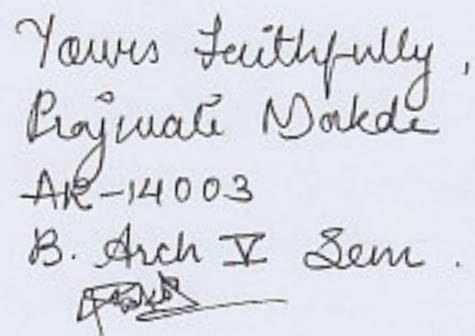 Yours Faithfully,
Prajwali Morkde
AR-14003
B. Arch V Sem.